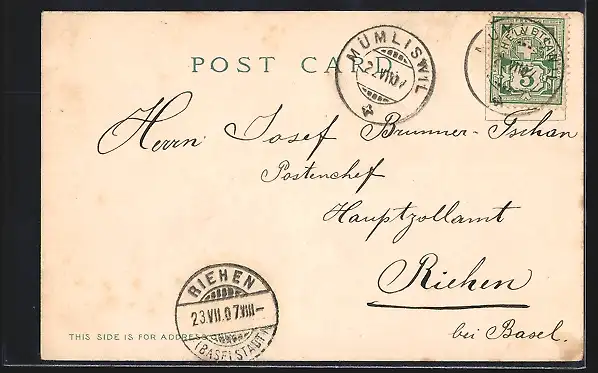 POST CARD
MÜMLISWIL
22.VII.07
Herrn Josef Brunner-Tschan
Postenchef
Hauptzollamt
Riehen
bei Basel.
RIEHEN
23.VII.07.VIII-
(BASELSTADT)
THIS SIDE IS FOR ADDRESS